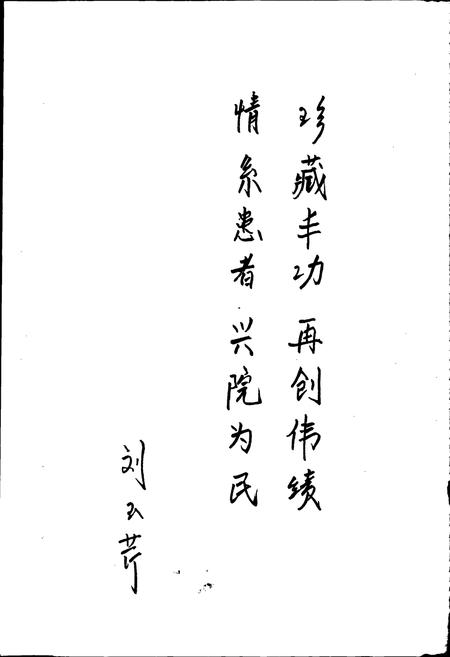 珍藏丰功 再创伟绩
情系患者 兴院为民
刘玉芹